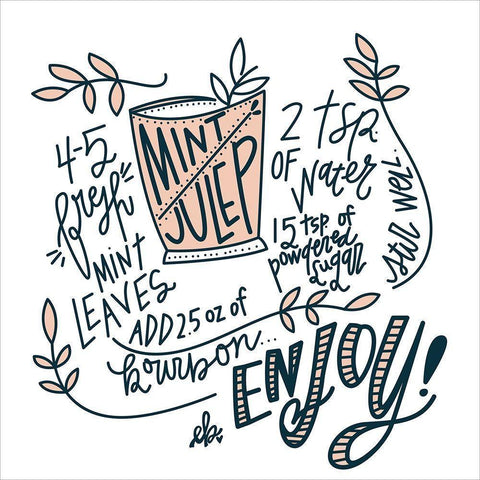 MINT
JULEP
4-5
fresh
MINT
LEAVES
2 tsp.
OF
Water
15 tsp. of
powdered
sugar
Stir well..
ADD 2.5 oz of
bourbon...
ENJOY!
eb.